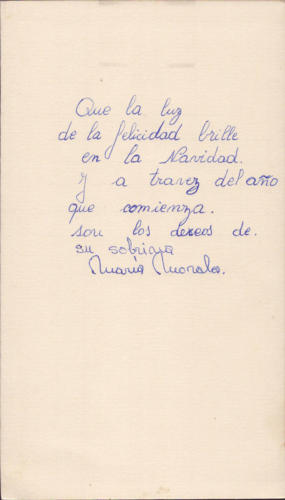 Que la luz
de la felicidad brille
en la Navidad.
Y a travez del año
que comienza.
son los deseos de.
su sobrina
María Morales.